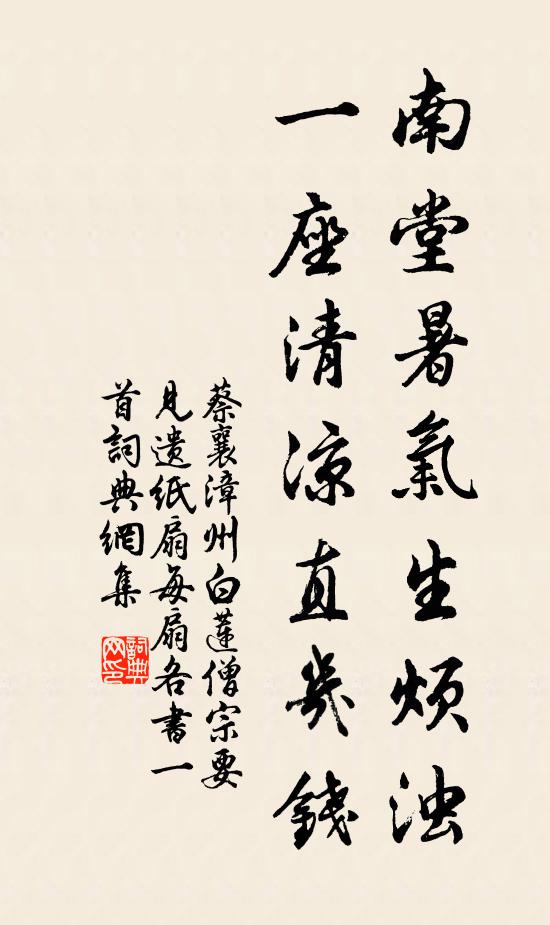 南堂暑氣生煩浊
一座清涼直幾錢
蔡襄漳州白蓮僧宗要
見遗纸扇每扇各書一
首詞典網集
詞典網印